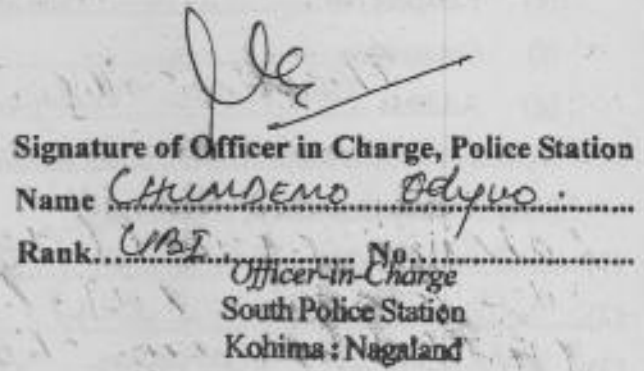 Signature of Officer in Charge, Police Station
Name CHUMDEMO Odyuo.
Rank UBI No
Officer-in-Charge
South Police Station
Kohima : Nagaland